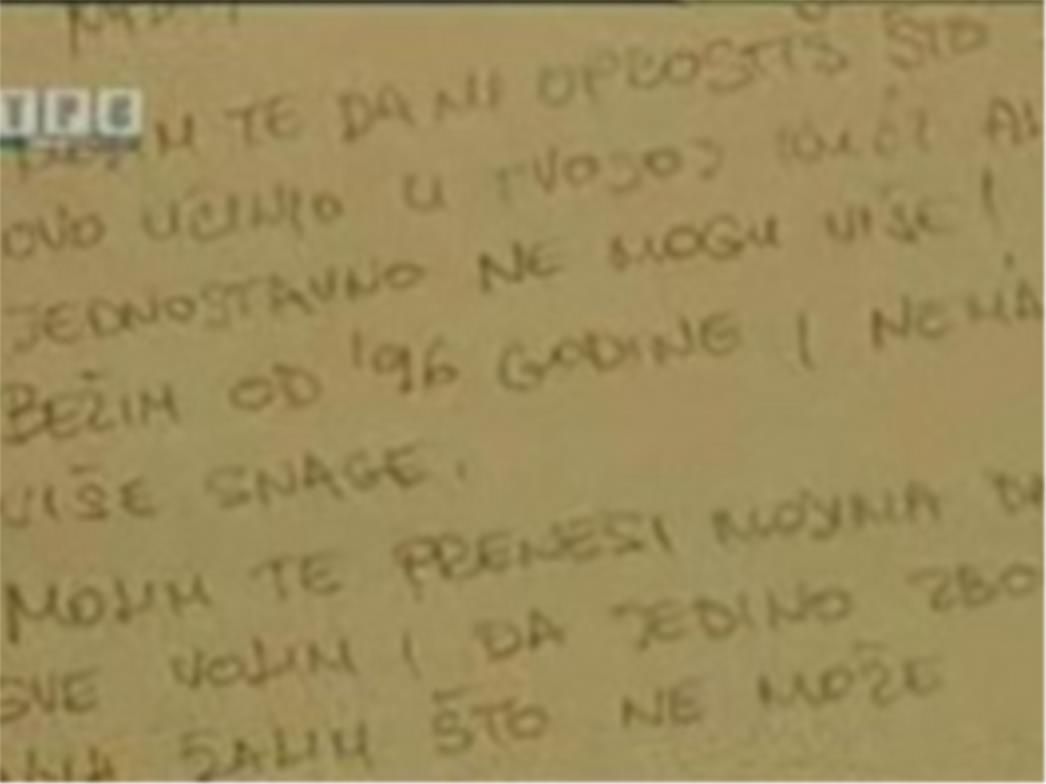 TE DA MI OPROSTIŠ ŠTO
OVO UČINIO U TVOJOJ KUĆI
JEDNOSTAVNO NE MOGU VIŠE!
BEŽIM OD '96 GODINE I NEMA
VIŠE SNAGE.
MOLIM TE PRENESI MOJIMA DA
SVE VOLIM I DA JEDINO ZBO
ŽALIM ŠTO NE MOŽE